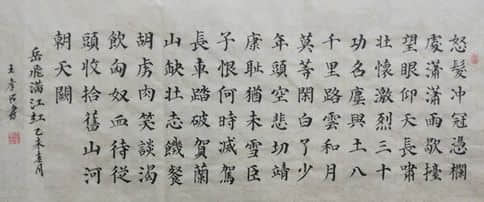 怒髮冲冠憑欄
處瀟瀟雨歇擡
望眼仰天長嘯
壮懷激烈三十
功名塵與土八
千里路雲和月
莫等閑白了少
年頭空悲切靖
康耻猶未雪臣
子恨何時滅駕
長車踏破賀蘭
山缺壮志饑餐
胡虜肉笑談渴
飲匈奴血待從
頭收拾舊山河
朝天闕
岳飛滿江紅乙未春月
書